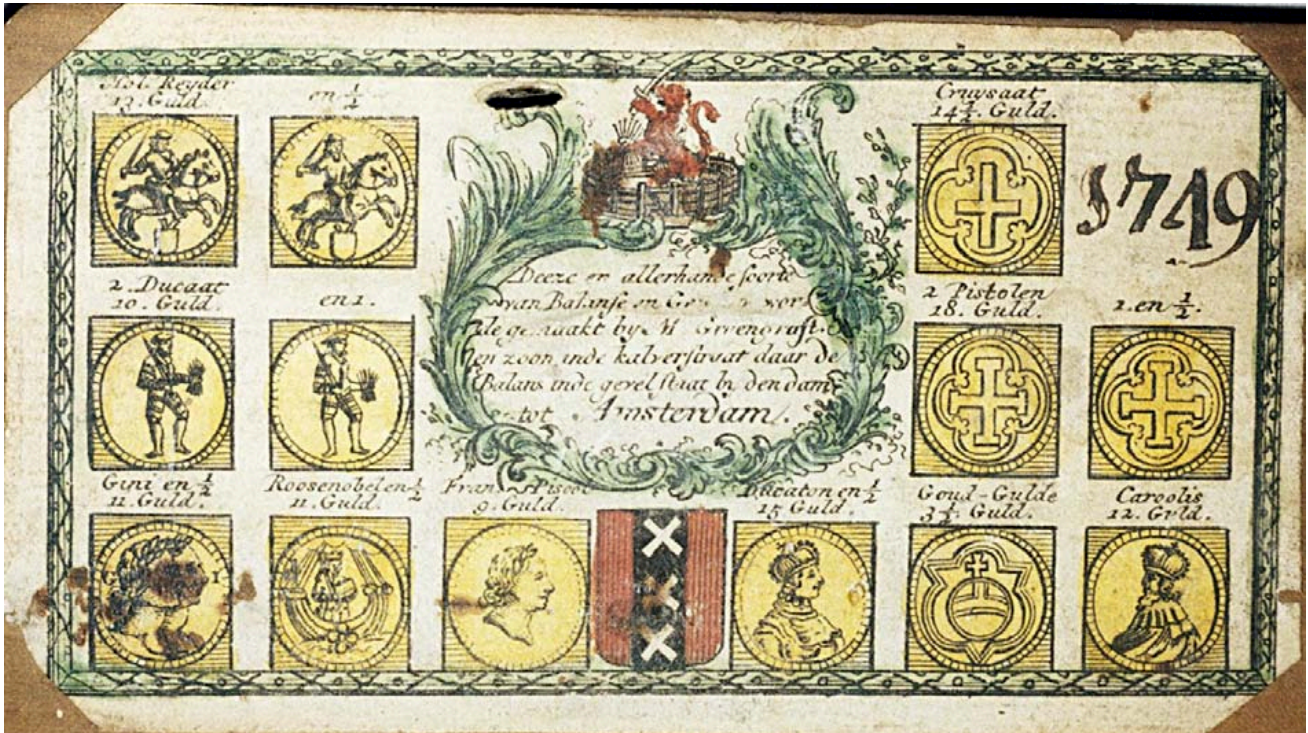 Hol. Reyder
13. Guld.
en 1/2
Cruysaat
14 1/2. Guld.
1749
2. Ducaat
10. Guld.
en 1.
Deeze en allerhande soorte
van Balanse en wor
de gemaakt by M Groengraft
en zoon inde kalverstraat daar de
Balans inde gevel staat by den dam
tot Amsterdam.
2 Pistolen
18. Guld.
1. en 1/2.
Gini en 1/2
11. Guld.
Roosenobel en 1/2
11. Guld.
Frans Pistol
9. Guld.
Ducaton en 1/2
15 Guld.
Goud-Gulde
3 1/2. Guld.
Caroolis
12. Gvld.